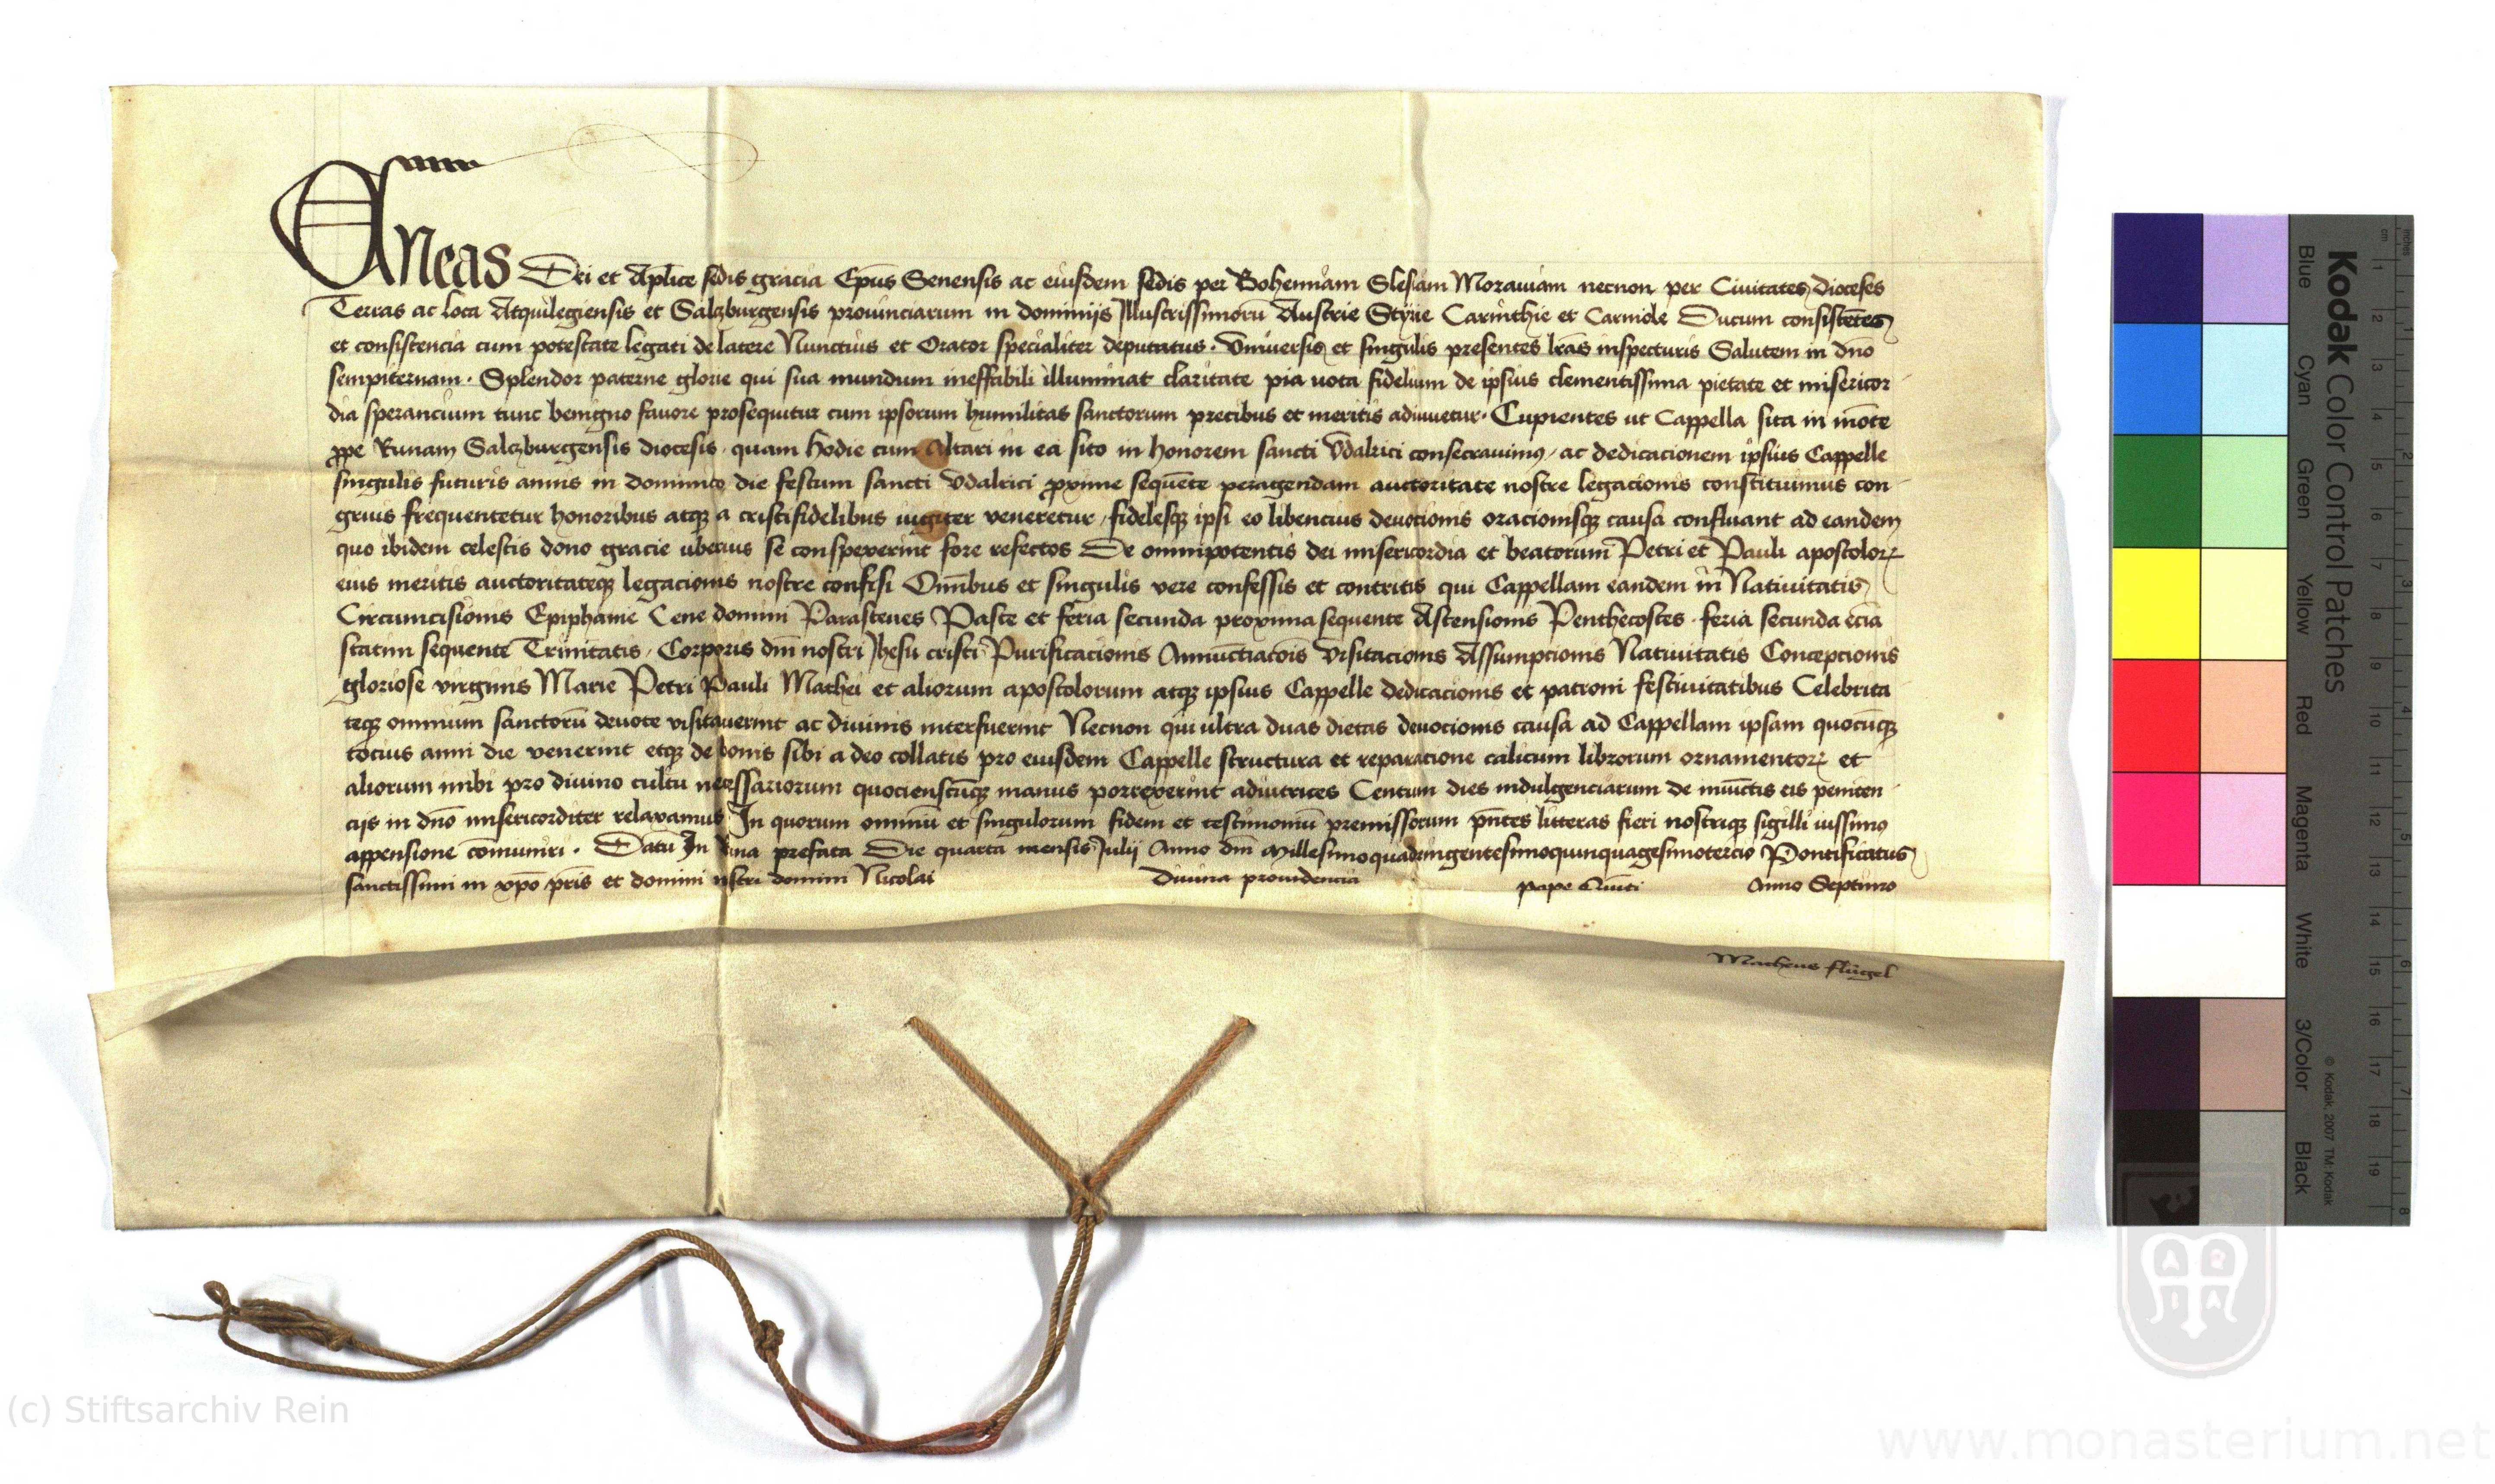 Eneas Dei et Aplice sedis gracia Epus Senensis ac eiusdem sedis per Bohemiam Slesiam Morauiam necnon per Ciuitates dioceses
Terras ac loca Atquilegiensis et Salczburgensis prouinciarum in dominijs Illustrissimoru Austrie Styrie Carinthie et Carniole Ducum consistetes
et consistencia cum potestate legati de latere Nunctius et Orator specialiter deputatus. Vniuersis et singulis presentes lras inspecturis Salutem in dno
sempiternam. Splendor paterne glorie qui sua mundum ineffabili illuminat claritate pia uota fidelium de ipsius clementissima pietate et misericor
dia sperancium tunc benigno fauore prosequitur cum ipsorum humilitas sanctorum precibus et meritis adiuuetur. Cupientes ut Cappella sita in mote
ppe Runam Salczburgensis diocesis, quam hodie cum Altari in ea sito in honorem sancti Vdalrici consecrauimus, ac dedicacionem ipsius Cappelle
singulis futuris annis in dominico die festum sancti Vdalrici pxime sequete peragendam auctoritate nostre legacionis constituimus con
gruis frequentetur honoribus atq a cristifidelibus iugiter veneretur, fidelesq ipsi eo libencius deuocionis oracionisq causa confluant ad eandem
quo ibidem celestis dono gracie uberius se conspexerint fore refectos De omnipotentis dei misericordia et beatorum Petri et Pauli apostolor
eius meritis auctoritateq legacionis nostre confisi Omibus et singulis vere confessis et contritis qui Cappellam eandem in Natiuitatis
Circumcisionis Epiphanie Cene domini Parasceues Pasce et feria secunda proxima sequente Ascensionis Penthecostes feria secunda ecia
statim sequente Trinitatis, Corporis dni nostri Jhesu cristi Purificacionis Annuctiacois Visitacionis Assumpcionis Natiuitatis Concepcionis
gloriose virginis Marie Petri Pauli Mathei et aliorum apostolorum atq ipsius Cappelle dedicacionis et patroni festiuitatibus Celebrita
teq omnium sanctoru deuote visitauerint ac diuinis interfuerint Necnon qui ultra duas dietas deuocionis causa ad Cappellam ipsam quocuq
tocius anni die venerint etq de bonis sibi a deo collatis pro eiusdem Cappelle structura et reparacione calicum librorum ornamentor et
aliorum inibi pro diuino cultu necessariorum quocienscuq manus porrexerint adiutrices Centum dies indulgenciarum de iniuctis eis peniten
cijs in dno misericorditer relaxamus In quorum omniu et singulorum fidem et testimoniu premissorum pntes litteras fieri nostriq sigilli iussimus
appensione comuniri. Datu In Runa prefata Die quarta mensis Julij Anno dni Millesimoquadringentesimoquinquagesimotercio Pontificatus
sanctissimi in xpo pris et domini nostri domini Nicolai Diuina prouidencia pape Quinti Anno Septimo
Matheus flugel
Kodak Color Control Patches
Blue Cyan Green Yellow Red Magenta White 3/Color Black
© Kodak, 2007 TM: Kodak
cm 1 2 3 4 5 6 7 8 9 10 11 12 13 14 15 16 17 18 19
inches 1 2 3 4 5 6 7 8
(c) Stiftsarchiv Rein
www.monasterium.net